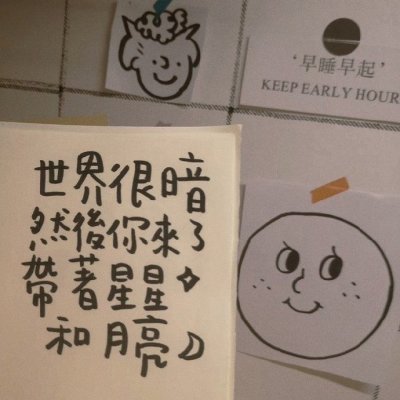 '早睡早起'
KEEP EARLY HOUR
世界很暗
然後你來了
帶著星星
和月亮